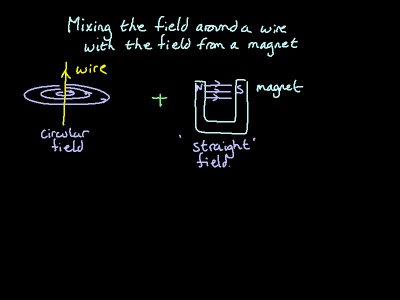 Mixing the field around a wire
with the field from a magnet
wire
+
N
S
magnet
circular
field
'straight'
field.